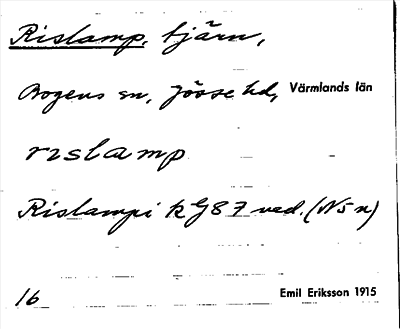 Rislamp, tjärn,
Bogens sn, Jösse hd, Värmlands län
rıslamp
Rislampi k G 87 ved. (N5n)
16 Emil Eriksson 1915